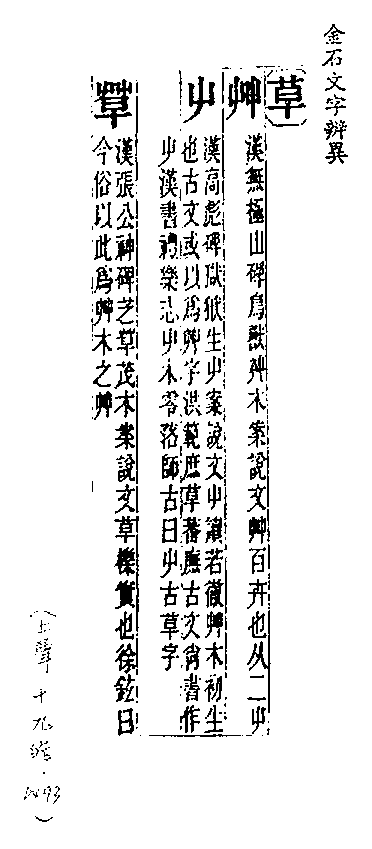 金石文字辨異
草
艸
漢無極山碑鳥獸艸木案說文艸百卉也从二屮
屮
漢高彪碑獄狱生屮案說文屮讀若徹艸木初生
也古文或以為艸字洪範庶草蕃廡古文尚書作
屮漢書禮樂志屮木零落師古曰屮古草字
漢張公神碑芝草茂木案說文草櫟實也徐鉉曰
今俗以此為艸木之艸
(上聲 十九晧.
93)